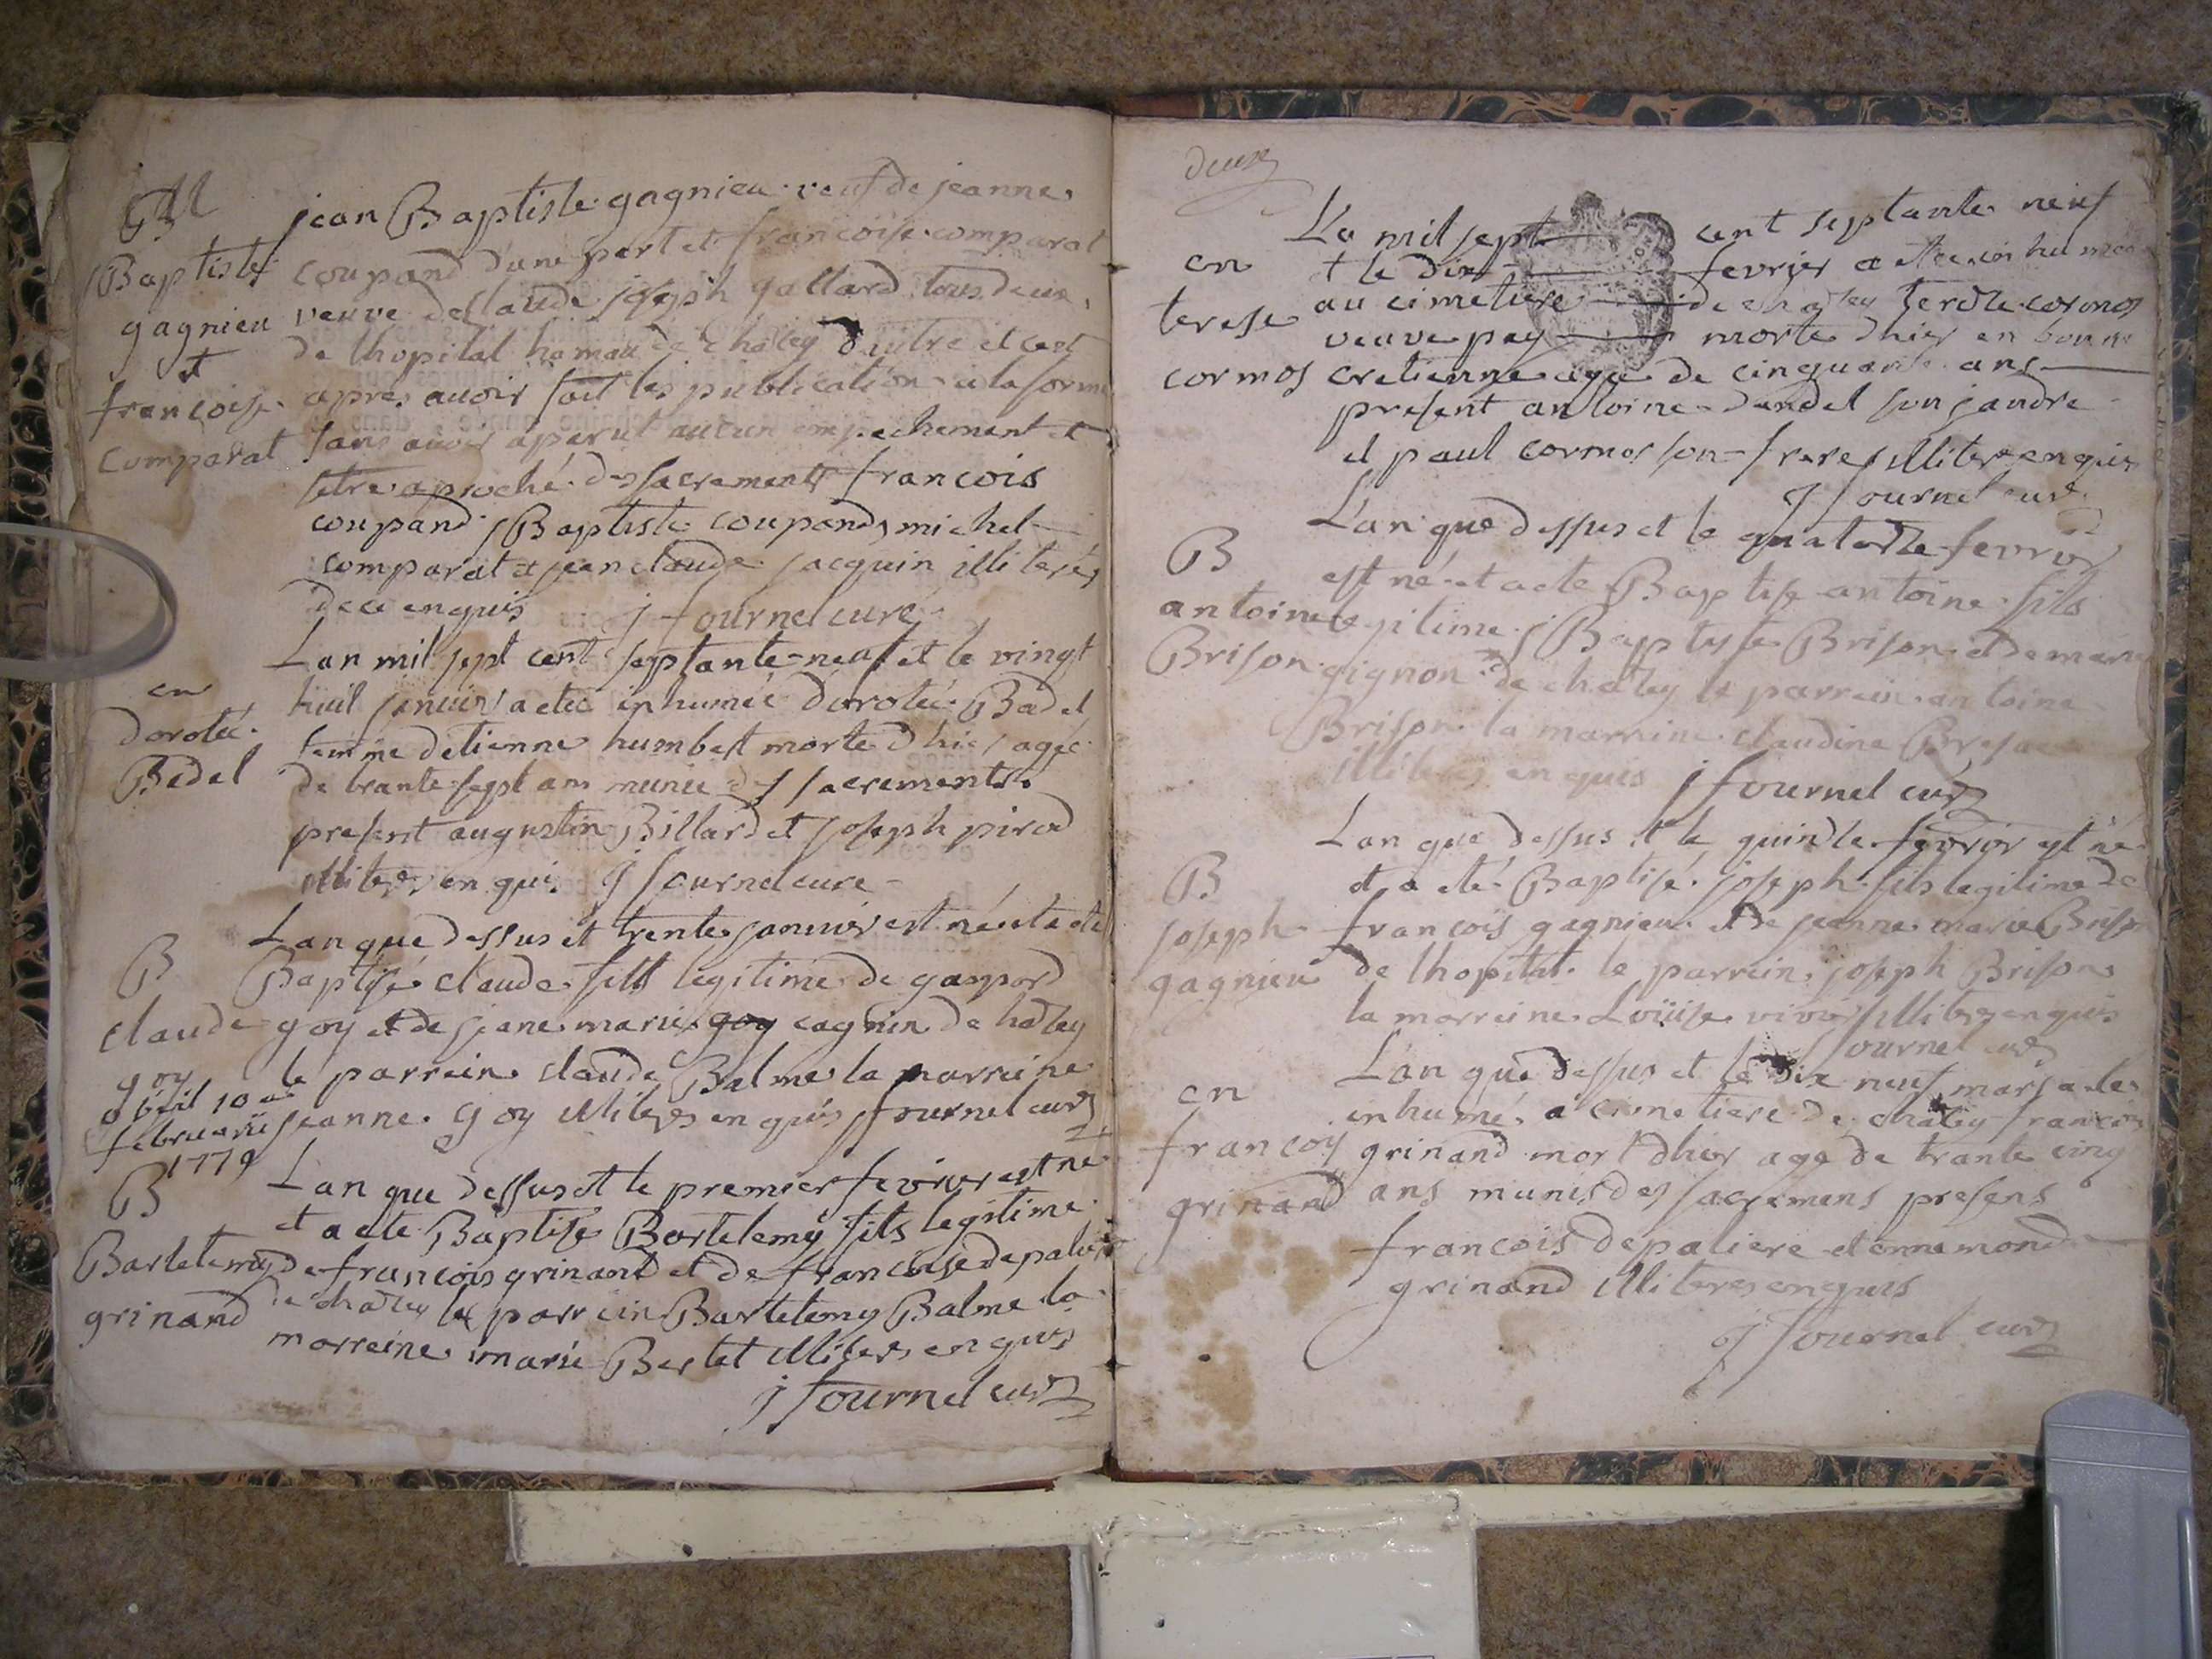 M
Baptiste
gagnieu
et
francoise
comparat
jean Baptiste gagnieu veuf de jeanne
coupand d'une part et francoise comparat
veuve de claude joseph gallard tous deux
de lhopital hamau de chaley dautre et cest
apres avoir fait les publication a la forme
sans avoir aperut aucun empechement et
setre aproché des sacrements francois
coupand j Baptiste coupand michel
comparat et jean claude jacquin illiterés
de ce enquis j fournel curé
en
dorotée
Badel
Lan mil sept cent septante neuf et le vingt
huit janvier a eteé inhumée dorotée Badel
femme detienne humbert morte dhier agée
de trante sept ans munie des sacrements
present augustin Billard et joseph pirod
illiteres enquis J fournel cure
B
claude
goy
obiit 10a
februarii
1779
Lan que dessus et trente janvier est né et a eté
Baptisé claude fils legitime de gaspard
goy et de jeane marie goy cagnin de chaley
le parrein claude Balme la marreine
jeanne goy illiteres enquis j fournel curé
B
Bartelemy
grinand
Lan que dessus et le premier fevrier est né
et a ete Baptise Bartelemy fils legitime
de francois grinant et de francoise depaliere
de chaley le parrein Bartelemy Balme la
marreine marie Bertet illiteres enquis
j fournel curé
deux
en
terese
cormos
La mil sept cent septante neuf
et le dix fevrier a etee inhumee
au cimetiere de chaley terese cormos
veuve pey morte dhier en bonne
cretienne agée de cinquante ans
present antoine dandel son jandre
et paul cormos son frere illiteres enquis
J fournel curé
B
antoine
Brison
L'an que dessus et le quatorze fevrier
est né et a ete Baptise antoine fils
legitime j Baptiste Brison et de marie
gignon de chaley le parrein antoine
Brison la marrine claudine
illiteres enquis j fournel curé
B
joseph
gagnieu
Lan que dessus et le quinze fevrier est né
et a eté Baptisé joseph fils legitime de
francois gagnieu et de jeanne marie Brison
de lhopital le parrein joseph Brison
la marreine Loüise vivier illiteres enquis
J fournel curé
en
francois
grinand
L'an que dessus et le dix neuf mars a ete
inhumé a cimetiere de chaley francois
grinand mort dhier age de trante cinq
ans munis des sacremens presens
francois depaliere et ennemond
grinand illiteres enquis
j fournel curé